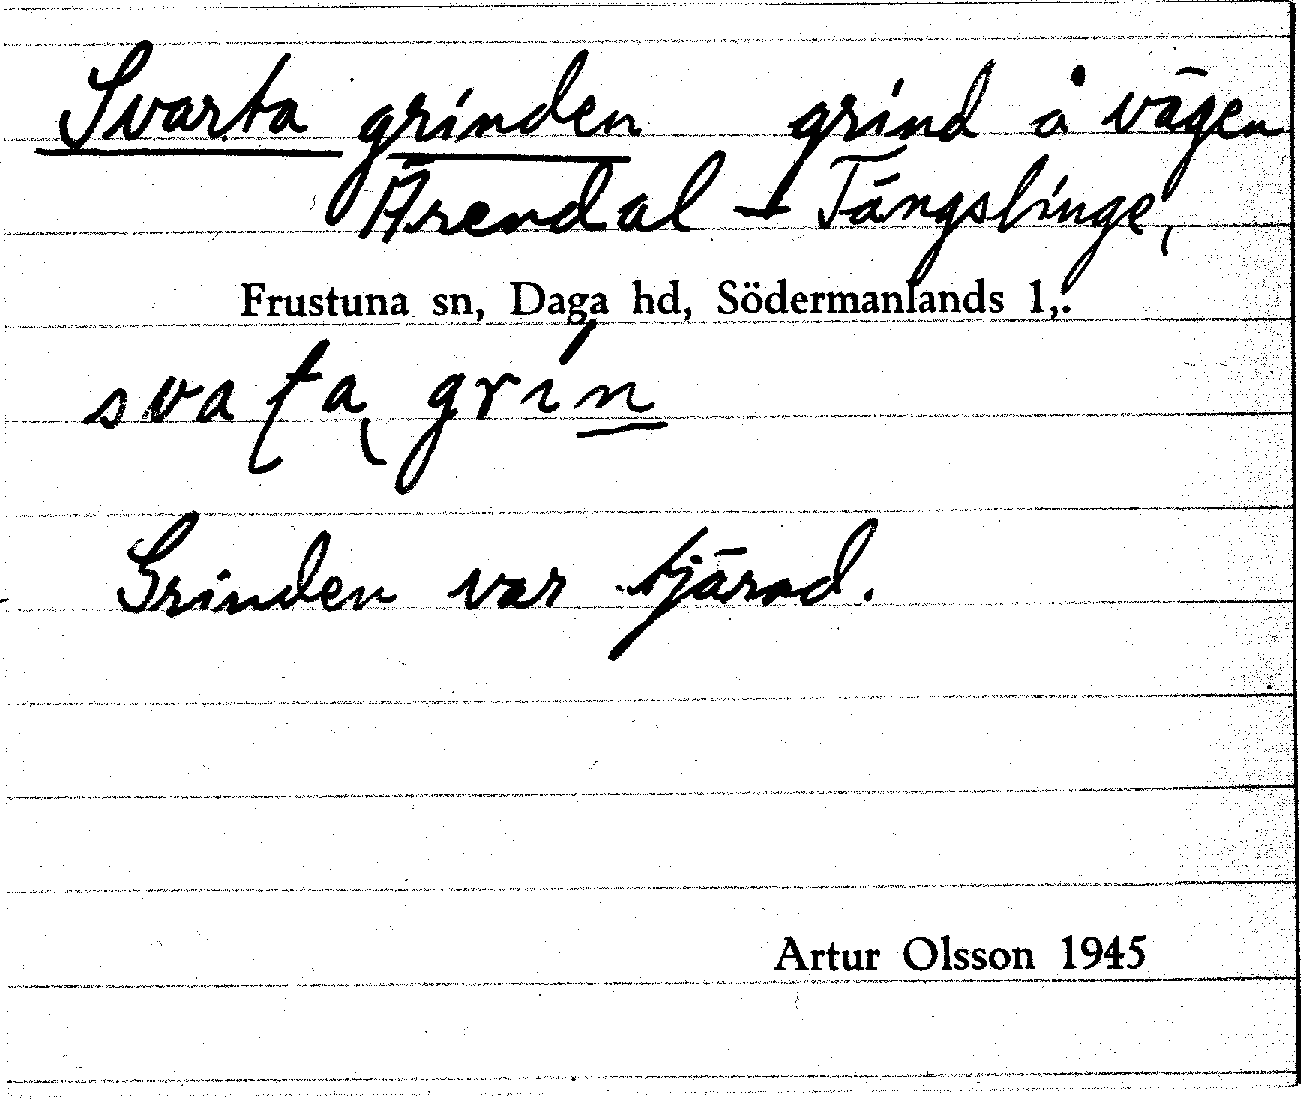 Svarta grinden grind å vägen
Ärendal - Tängslinge,
Frustuna sn, Daga hd, Södermanlands l,.
svaʈa grin
Grinden var tjärad.
Artur Olsson 1945